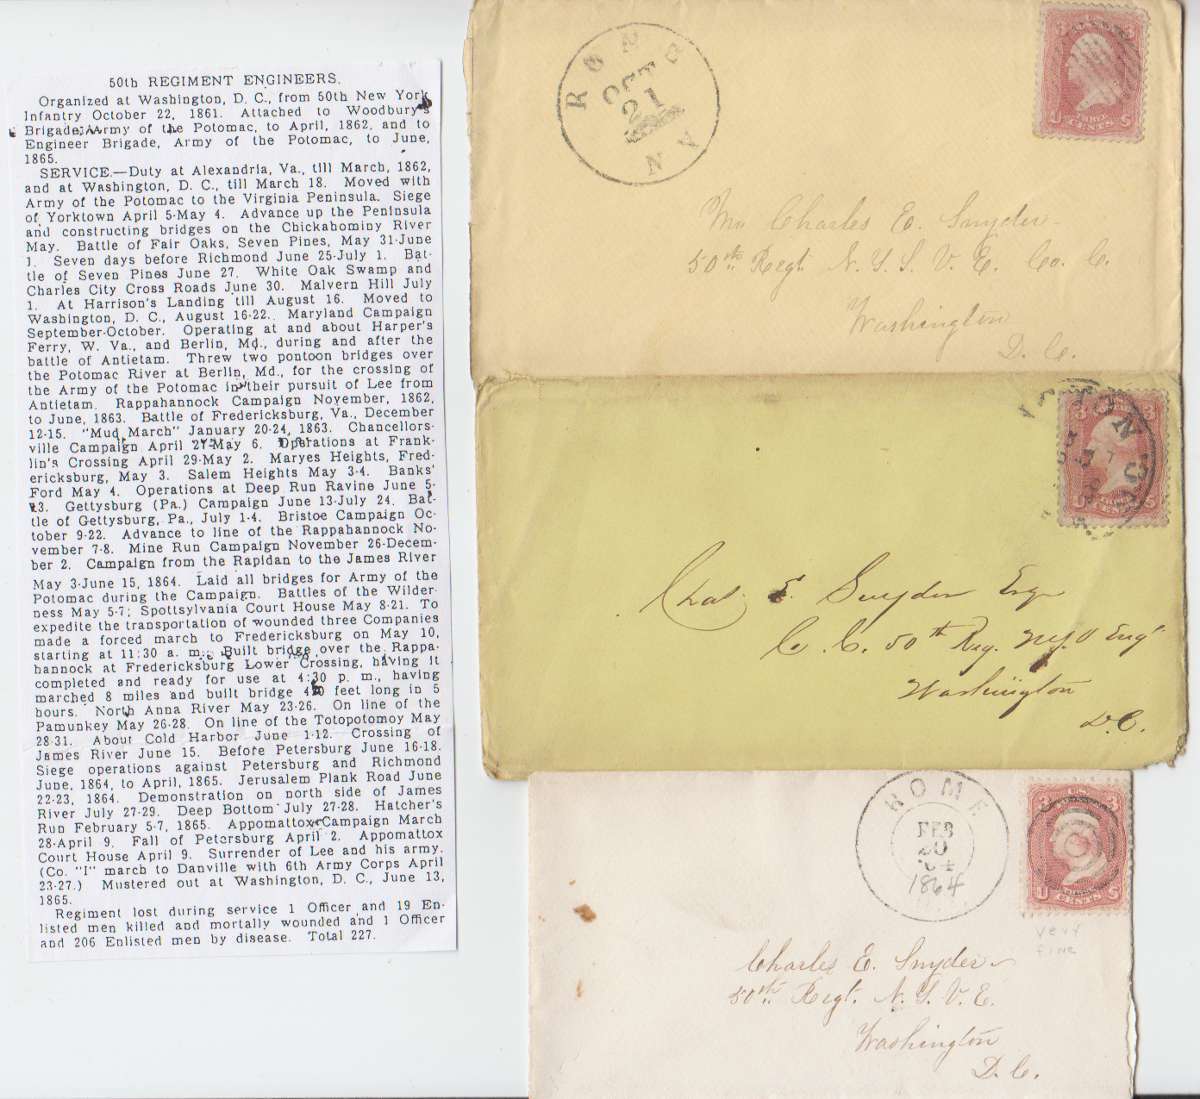 50th REGIMENT ENGINEERS.
Organized at Washington, D. C., from 50th New York
Infantry October 22, 1861. Attached to Woodbury's
Brigade, Army of the Potomac, to April, 1862, and to
Engineer Brigade, Army of the Potomac, to June,
1865.
SERVICE.—Duty at Alexandria, Va., till March, 1862,
and at Washington, D. C., till March 18. Moved with
Army of the Potomac to the Virginia Peninsula. Siege
of Yorktown April 5-May 4. Advance up the Peninsula
and constructing bridges on the Chickahominy River
May. Battle of Fair Oaks, Seven Pines, May 31-June
1. Seven days before Richmond June 25-July 1. Bat-
tle of Seven Pines June 27. White Oak Swamp and
Charles City Cross Roads June 30. Malvern Hill July
1. At Harrison's Landing till August 16. Moved to
Washington, D. C., August 16-22. Maryland Campaign
September-October. Operating at and about Harper's
Ferry, W. Va., and Berlin, Md., during and after the
battle of Antietam. Threw two pontoon bridges over
the Potomac River at Berlin, Md., for the crossing of
the Army of the Potomac in their pursuit of Lee from
Antietam. Rappahannock Campaign November, 1862,
to June, 1863. Battle of Fredericksburg, Va., December
12-15. "Mud March" January 20-24, 1863. Chancellors-
ville Campaign April 27-May 6. Operations at Frank-
lin's Crossing April 29-May 2. Maryes Heights, Fred-
ericksburg, May 3. Salem Heights May 3-4. Banks'
Ford May 4. Operations at Deep Run Ravine June 5-
13. Gettysburg (Pa.) Campaign June 13-July 24. Bat-
tle of Gettysburg, Pa., July 1-4. Bristoe Campaign Oc-
tober 9-22. Advance to line of the Rappahannock No-
vember 7-8. Mine Run Campaign November 26-Decem-
ber 2. Campaign from the Rapidan to the James River
May 3-June 15, 1864. Laid all bridges for Army of the
Potomac during the Campaign. Battles of the Wilder-
ness May 5-7; Spottsylvania Court House May 8-21. To
expedite the transportation of wounded three Companies
made a forced march to Fredericksburg on May 10,
starting at 11:30 a. m. Built bridge over the Rappa-
hannock at Fredericksburg Lower Crossing, having it
completed and ready for use at 4:30 p. m., having
marched 8 miles and built bridge 420 feet long in 5
hours. North Anna River May 23-26. On line of the
Pamunkey May 26-28. On line of the Totopotomoy May
28-31. About Cold Harbor June 1-12. Crossing of
James River June 15. Before Petersburg June 16-18.
Siege operations against Petersburg and Richmond
June, 1864, to April, 1865. Jerusalem Plank Road June
22-23, 1864. Demonstration on north side of James
River July 27-29. Deep Bottom July 27-28. Hatcher's
Run February 5-7, 1865. Appomattox Campaign March
28-April 9. Fall of Petersburg April 2. Appomattox
Court House April 9. Surrender of Lee and his army.
(Co. "I" march to Danville with 6th Army Corps April
23-27.) Mustered out at Washington, D. C., June 13,
1865.
Regiment lost during service 1 Officer and 19 En-
listed men killed and mortally wounded and 1 Officer
and 206 Enlisted men by disease. Total 227.
OCT
21
N Y
3 3
U THREE S
CENTS
Mr Charles E. Snyder
50th Regt N. Y. S. V. E. Co. C.
Washington
D. C.
3
U S
Chas. E. Snyder Esq
Co. C. 50th Reg. N.Y.V Engs
Washington
D.C.
ROME
FEB
20
'64
1864
U.S.
U CENTS S
very
fine
Charles E. Snyder
50th Regt. N. Y. V. E.
Washington
D. C.